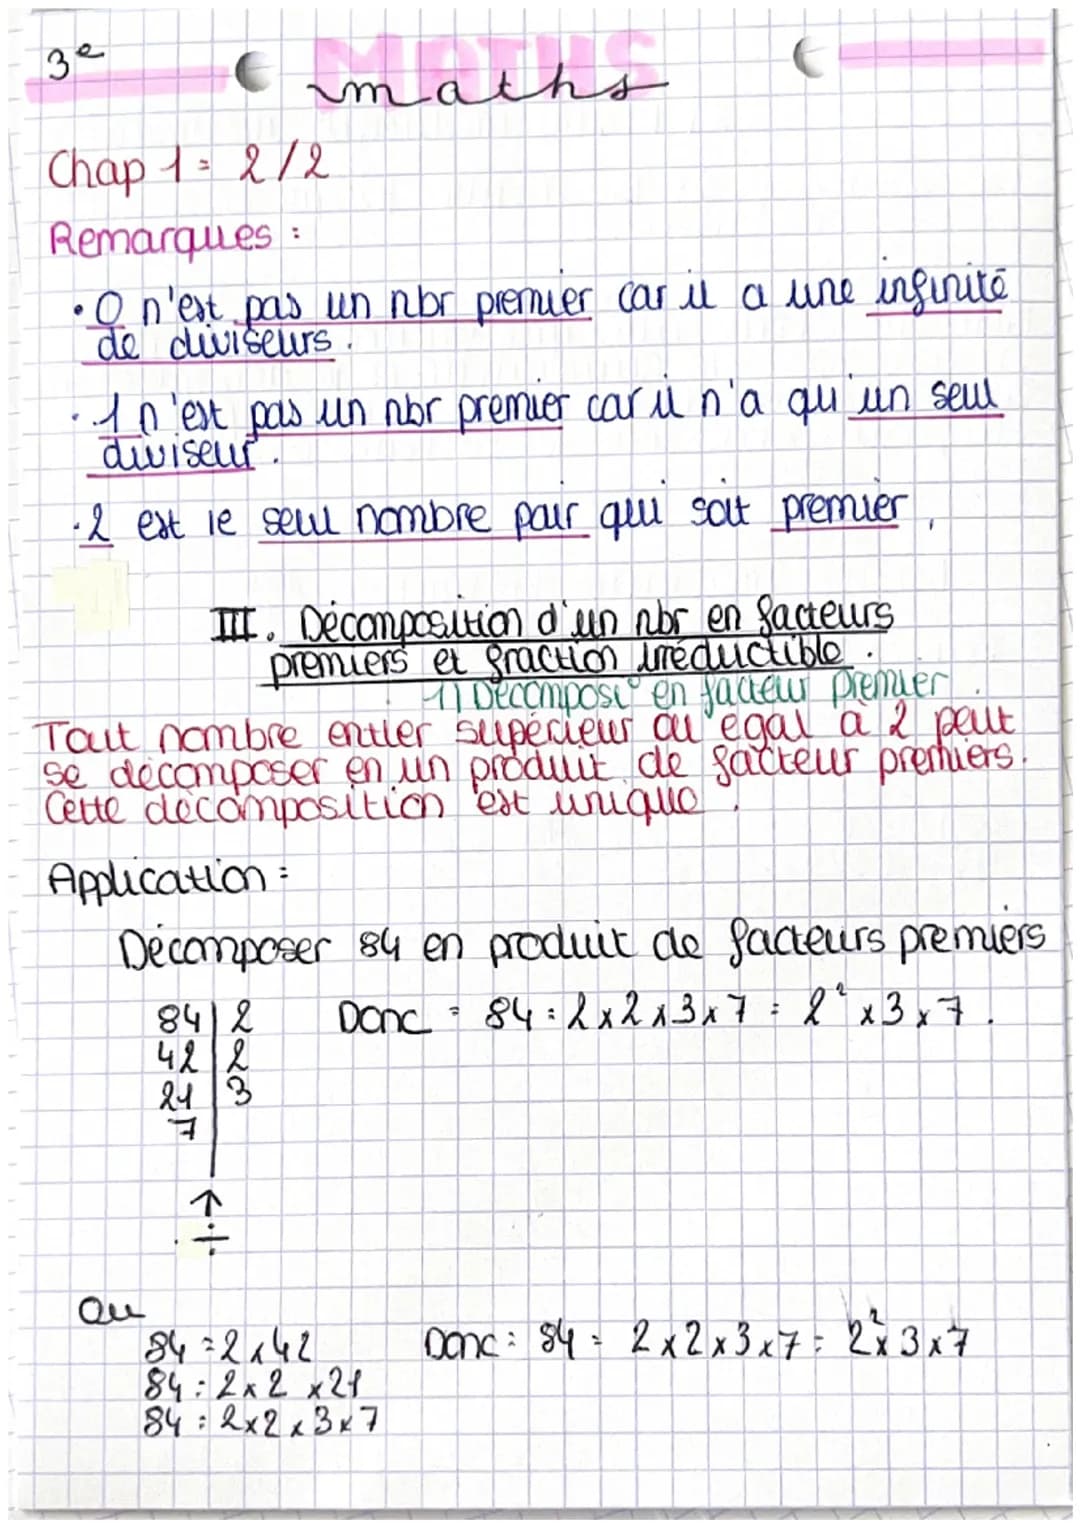 3e
MATHS
maths
Chap 1 = 2/2
Remarques :
• 0 n'est pas un nbr premier car il a une infinité
de diviseurs.
• 1 n'est pas un nbr premier car il n'a qu'un seul
diviseur.
• 2 est le seul nombre pair qui soit premier.
III. Décomposition d'un nbr en facteurs
premiers et fraction irréductible.
1) Décomposi° en facteur premier.
Tout nombre entier supérieur ou égal à 2 peut
se décomposer en un produit de facteur premiers.
Cette décomposition est unique.
Application :
Décomposer 84 en produit de facteurs premiers
84 | 2 Donc = 84 = 2 x 2 x 3 x 7 = 2² x 3 x 7.
42 | 2
21 | 3
7
↑
÷
Ou
84 = 2 x 42 Donc : 84 = 2 x 2 x 3 x 7 = 2² x 3 x 7
84 = 2 x 2 x 21
84 = 2 x 2 x 3 x 7